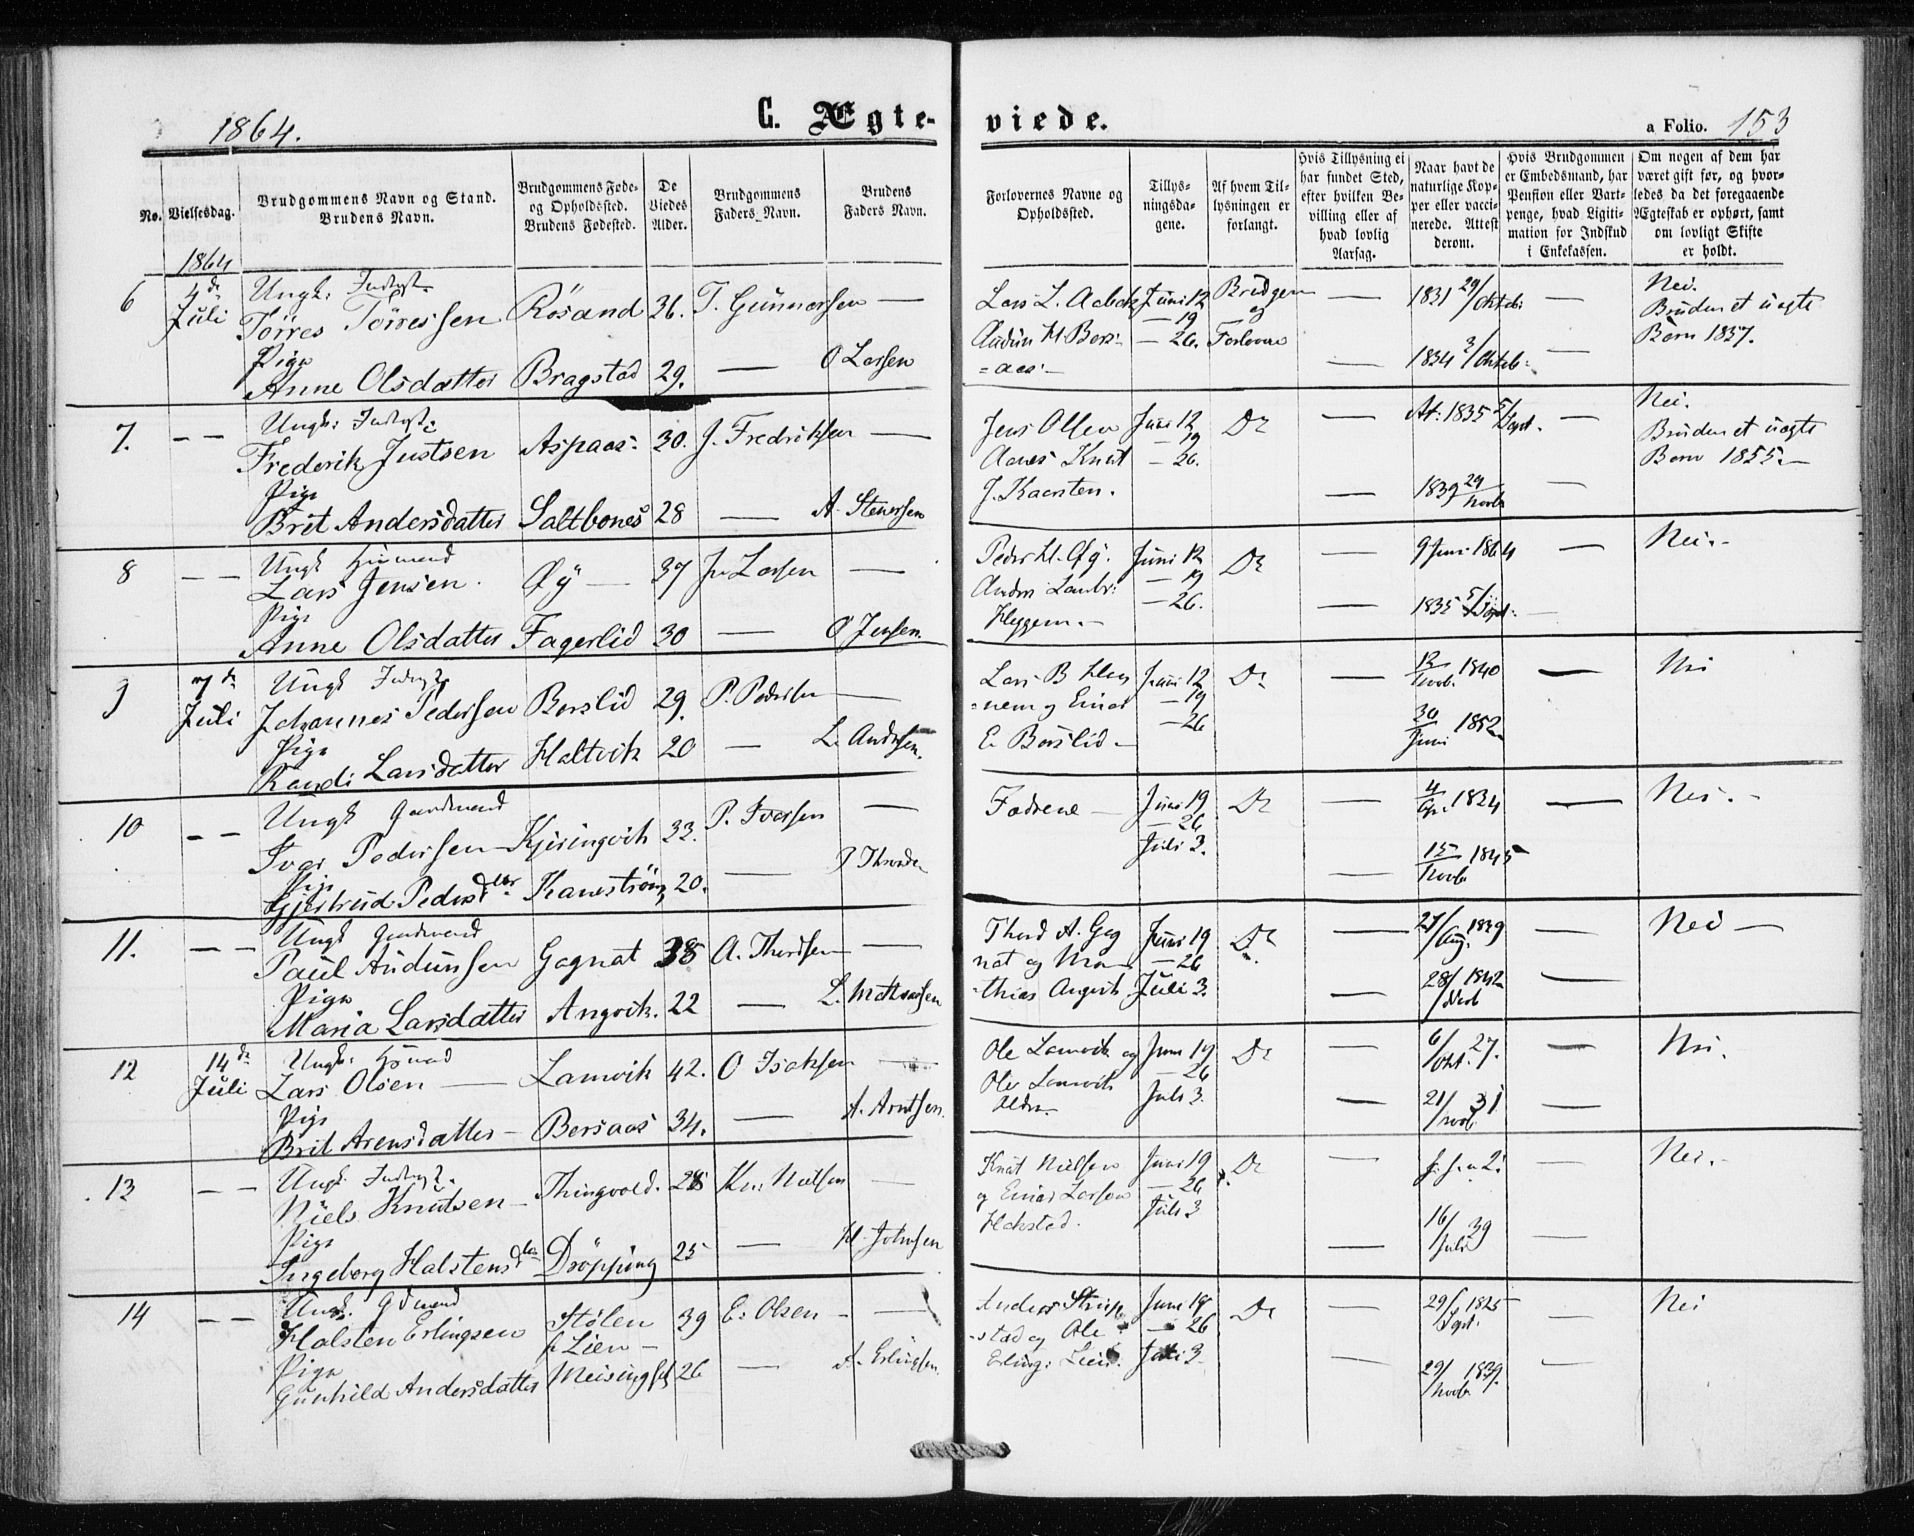 1864.
C. Ægte-
viede.
a Folio. 153
No.
Vielsesdag.
Brudgommens Navn og Stand.
Brudens Navn.
Brudgommens Føde-
og Opholdsted.
Brudens Fødested.
De
Viedes
Alder.
Brudgommens
Faders Navn.
Brudens
Faders Navn.
Forlovernes Navne og
Opholdssted.
Tillys-
ningsda-
gene.
Af hvem Til-
lysningen er
forlangt.
Hvis Tillysning ei
har fundet Sted,
efter hvilken Be-
villing eller af
hvad lovlig
Aarsag.
Naar havt de
naturlige Kop-
per eller vacci-
nerede. Attest
derom.
Hvis Brudgommen
er Embedsmand, har
Pension eller Vart-
penge, hvad Ligiti-
mation for Indskud
i Enkekassen.
Om nogen af dem har
været gift før, og hvor-
ledes da det foregaaende
Ægteskab er ophørt, samt
om lovligt Skifte
er holdt.
1864
6 4de Juli Ungk: Inderst:
Törres Törressen Rösand 36. T. Gunnarsen —
Pige
Anne Olsdatter Bragstad 29. — O Larsen
Juni 12 Brudgom 1831 29/Oktob: — Nei.
— 19 og Bruden et uægte
— 26. Forlovere Barn 1857.
— 1834 3/Oktob: —
7. — — Ungk: Inderst:
Frederik Justsen Aspaas: 30. J. Fredriksen —
Pige
Brit Andersdatter Saltbones 28 — A. Stenersen
Jens Olsen Juni 12 Do — At: 1835 5/Sept. — Nei.
— 19 Bruden et uægte
— 26. Barn 1855.—
J. Karsten. — 1839 29/Novb —
8 — — Ungk Husmand
Lars Jensen. Øy — 37 Jn Larsen —
Pige
Anne Olsdatter Fagerlid 30 — O Jensen
Peder H. Øy. Juni 12 Do 9 Juni 1864 — Nei.-
— 19
Heggem.— — 26. — 1835 5/Sept: —
9 7de Juli Ungk Inderst
Johannes Pedersen Borslid 29. P. Pedersen —
Pige
Randi Larsdatter Holtvik 20 — L. Andersen.
Juni 12 Do — 12/Novb. 1840 — Nei
=nem og Einar — 19
E. Borslid — — 26 30/Juni 1852
10 — — Ungk Gaardmand
Ivar Pedersen Kjiringvik 33. P. Ivarsen —
Pige
Gjertrud Pedersdtter Kanestrøm 20. —
Fædrene — Juni 19 Do — — Nei.-
— 26
Juli 3. — 15/Novb 1845
11. — — Ungk Gaardmand
Paul Audunsen Gagnat 38 A. Thordsen —
Pige
Maria Larsdatter Angvik. 22 — L. Mathiassen
Thord A. Gag Juni 19 Do — 27/Aug. 1829 — Nei —
nat og Ma- — 26
thias Angvik Juli 3. — 28/ 1842 —
12 14de Juli Ungk: Hsmad
Lars Olsen — Lamvik 42. O Isaksen —
Pige
Brit Arensdatter — Bersaas 34. — A. Arntsen.
Ole Lamvik og Juni 19 Do — 6/Okt. 27. — Nei.
Ole Lamvik — 26
Juli 3. — 21/Novb. 31 —
13 — — Ungk. Inderst.
Niels Knutsen — Thingvold. 28 Kn: Nielsen —
Pige
Ingeborg Halstensdtter Dröpping 25 — H. Johnsen
Knut Nielsen Juni 19 Do — — Nei.-
og Einar Larsen — 26
Hokstad. Juli 3 — 16/Juli 39 —
14 — — Ungk. Gdmand
Halsten Erlingsen Stølen 39 E. Olsen — —
f Lien —
Pige
Gunhild Andersdatter Meisingset 26 — A. Erlingsen.
Juni 19 Do — 29/Sept. 1825 — Nei
-stad og Ole — 26
Erling: Lien. Juli 3 — 29/Novb 1839. —